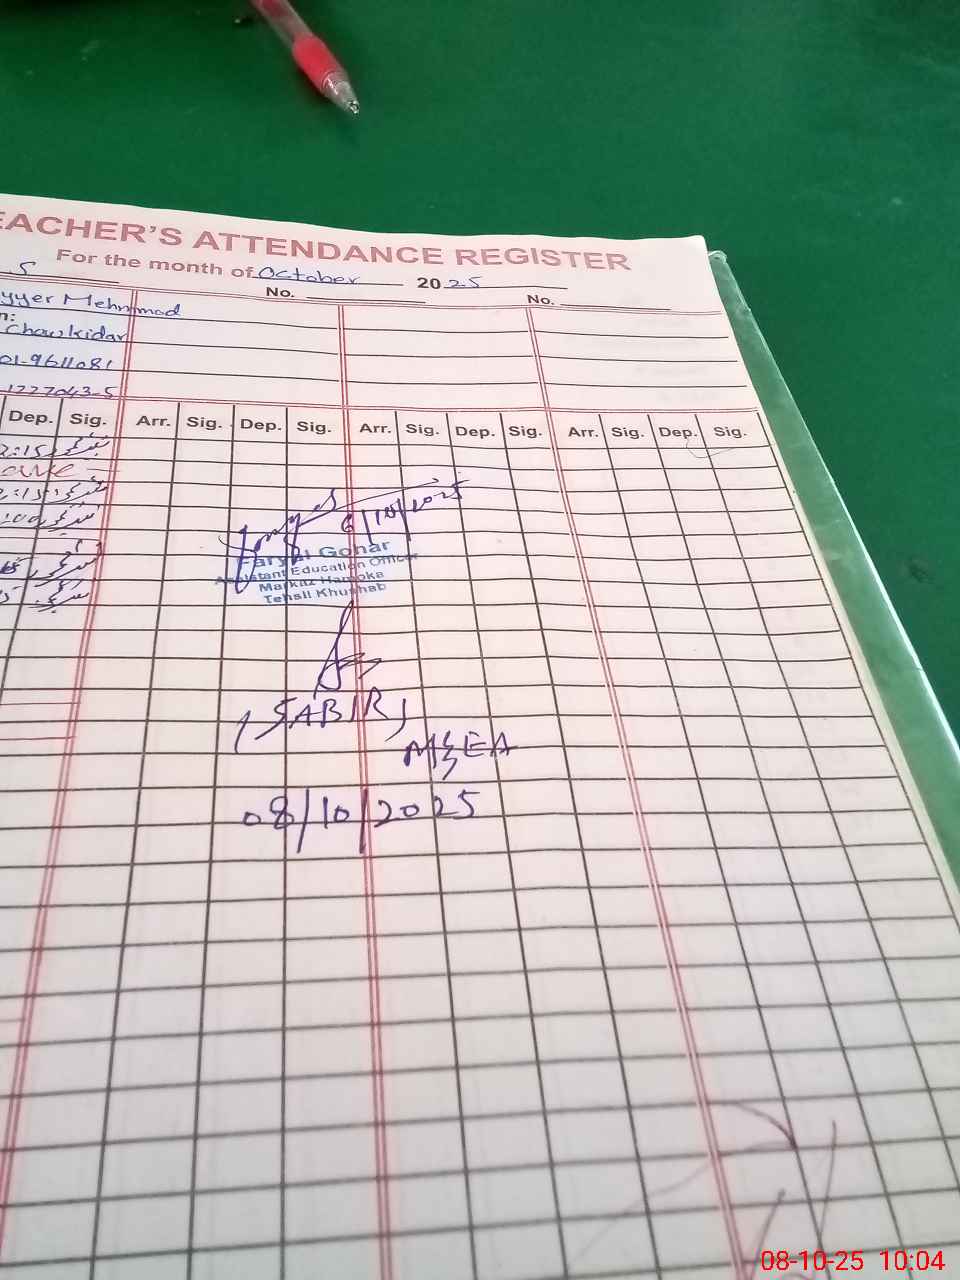 EACHER'S ATTENDANCE REGISTER
For the month of October 2025
5 No. No.
yyer Mehmmad
n:
Chowkidar
01-9611081
1227043-5
Dep. Sig. Arr. Sig. Dep. Sig. Arr. Sig. Dep. Sig. Arr. Sig. Dep. Sig.
2:15
2:15
6/10/2025
Faryal Gohar
Assistant Education Officer
Markaz Hamoka
Tehsil Khushab
(SABIR)
MEA
08/10/2025
08-10-25 10:04